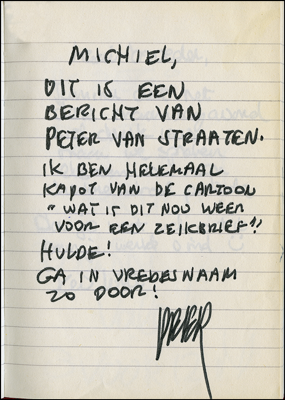 MICHIEL,
DIT IS EEN
BERICHT VAN
PETER VAN STRAATEN.
IK BEN HELEMAAL
KAPOT VAN DE CARTOON
"WAT IS DIT NOU WEER
VOOR EEN ZEIKBRIEF!"
HULDE!
GA IN VREDESNAAM
ZO DOOR!
PETER